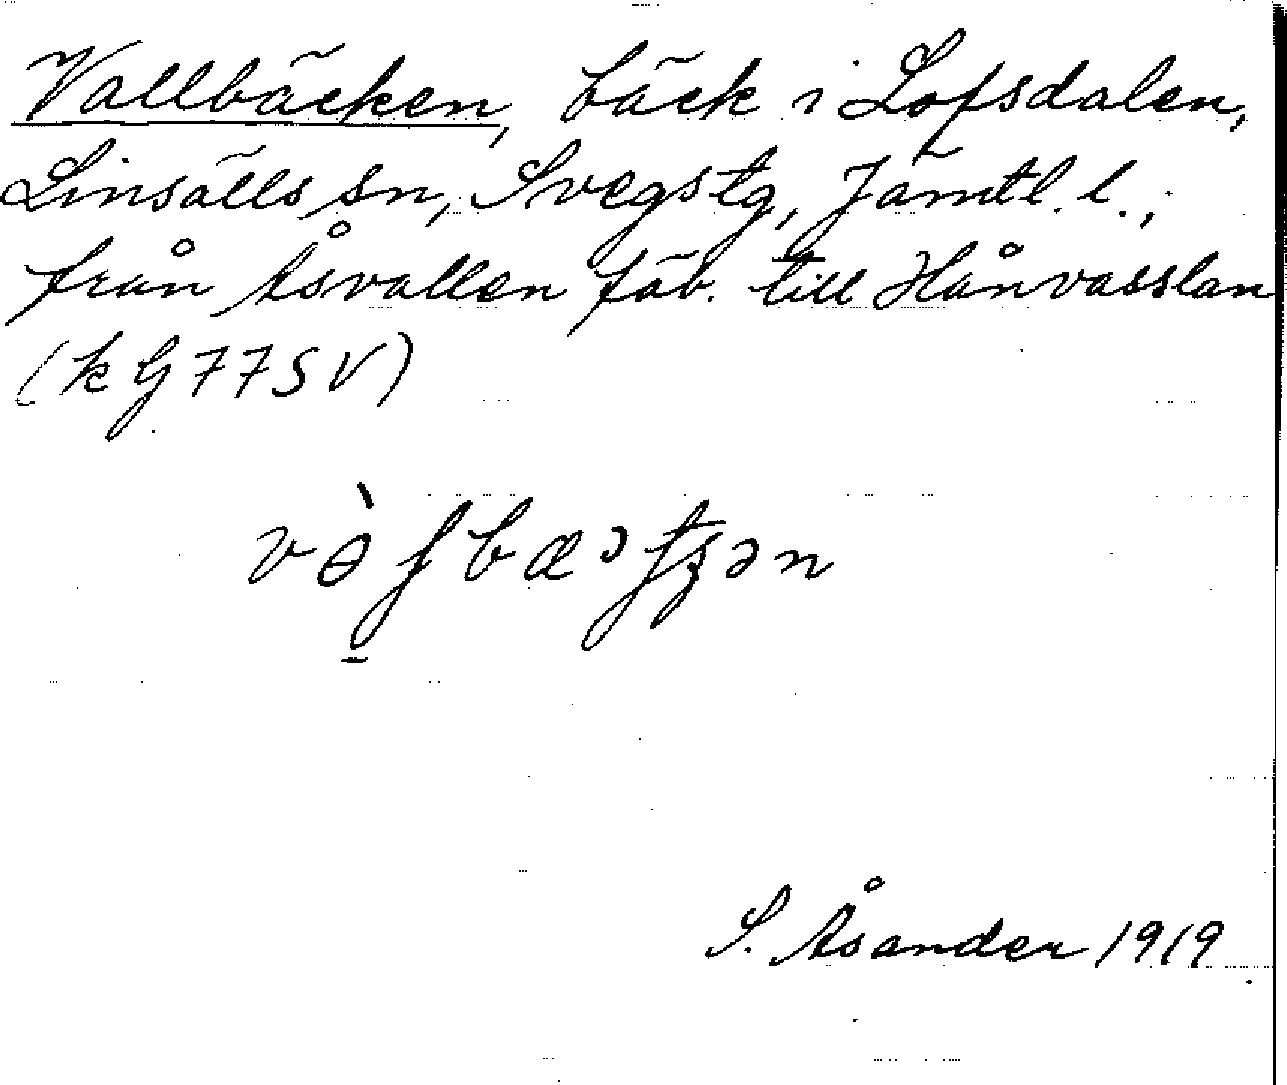 Vallbäcken, bäck i Lofsdalen,
Linsälls sn, Svegs tg, Jämtl. l.,
från Åsvallen fäb. till Hånvasslan
(k G 77 SV)
S. Åsander 1919